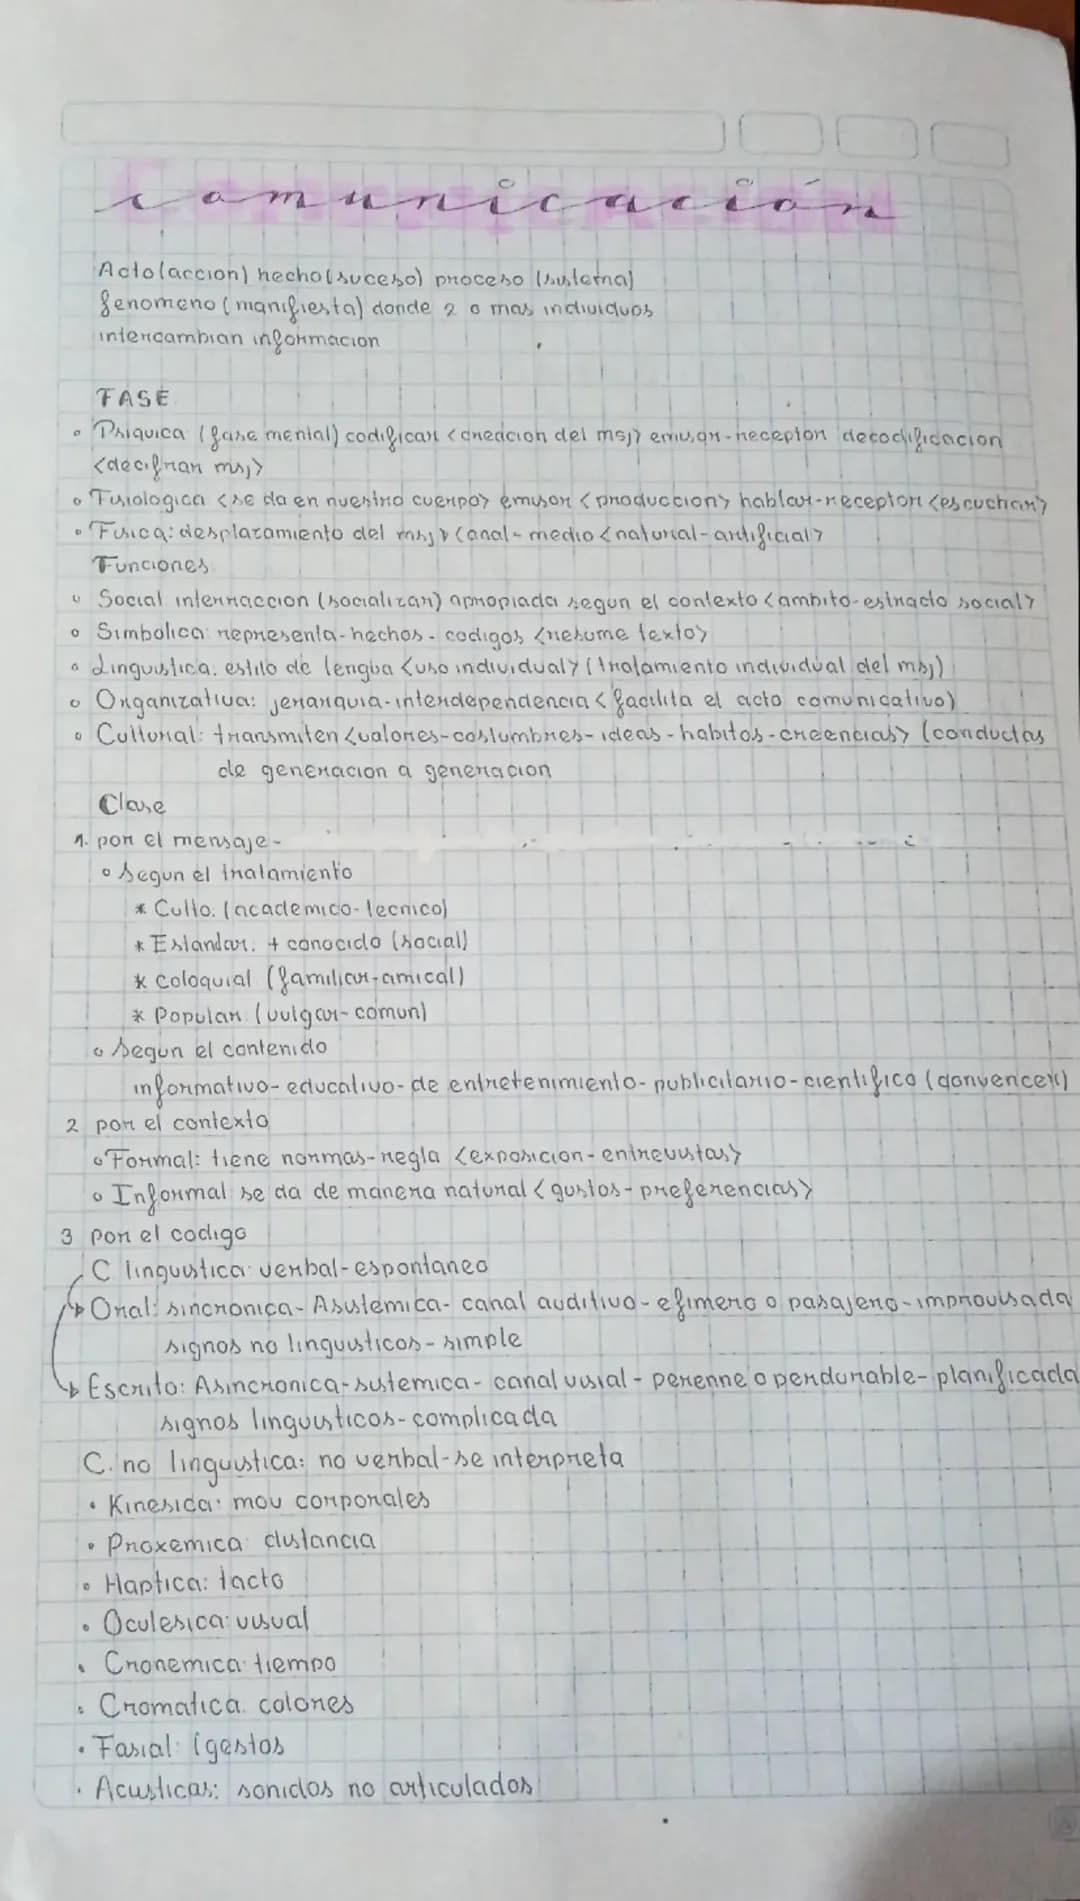 Comunicación
Acto(accion) hecho(suceso) proceso (sistema)
fenomeno (manifiesta) donde 2 o mas individuos
intercambian informacion
FASE
Psiquica (fase mental) codificar <creacion del msj> emisor-receptor decodificacion
<decifrar msj>
Fisiologica <se da en nuestro cuerpo> emisor <produccion> hablar-receptor <escuchar>
Fisica: desplazamiento del msj Canal-medio <natural-artificial>
Funciones
Social interraccion (socializar) apropiada segun el contexto <ambito-estracto social>
Simbolica representa-hechos-codigos <resume texto>
Linguistica. estilo de lengua <uso individual> (tratamiento individual del msj)
Organizativa: jerarquia-interdependencia <facilita el acto comunicativo)
Cultural: transmiten <valores-costumbres-ideas-habitos-creencias> (conductas
de generacion a generacion
Clase
1. por el mensaje-
Segun el tratamiento
* Culto. (academico-tecnico)
* Estandar. + conocido (social)
* Coloquial (familiar-amical)
* Popular (vulgar-comun)
Segun el contenido
informativo-educativo-de entretenimiento-publicitario-cientifico (convencer)
2 por el contexto
Formal: tiene normas-regla <exposicion-entrevistas>
Informal se da de manera natural <gustos-preferencias>
3 por el codigo
C linguistica verbal-espontaneo
Oral: sincronica-Asistemica-canal auditivo-efimero o pasajero-improvisada
signos no linguisticos-simple
Escrito: Asincronica-sistemica-canal visial-perenne o perdurable-planificada
signos linguisticos-complicada
C. no linguistica: no verbal-se interpreta
• Kinesica: mov corporales
• Proxemica distancia
• Haptica: tacto
• Oculesica: visual
• Cronemica tiempo
• Cromatica. colores
• Fasial (gestos
• Acusticas: sonidos no articulados